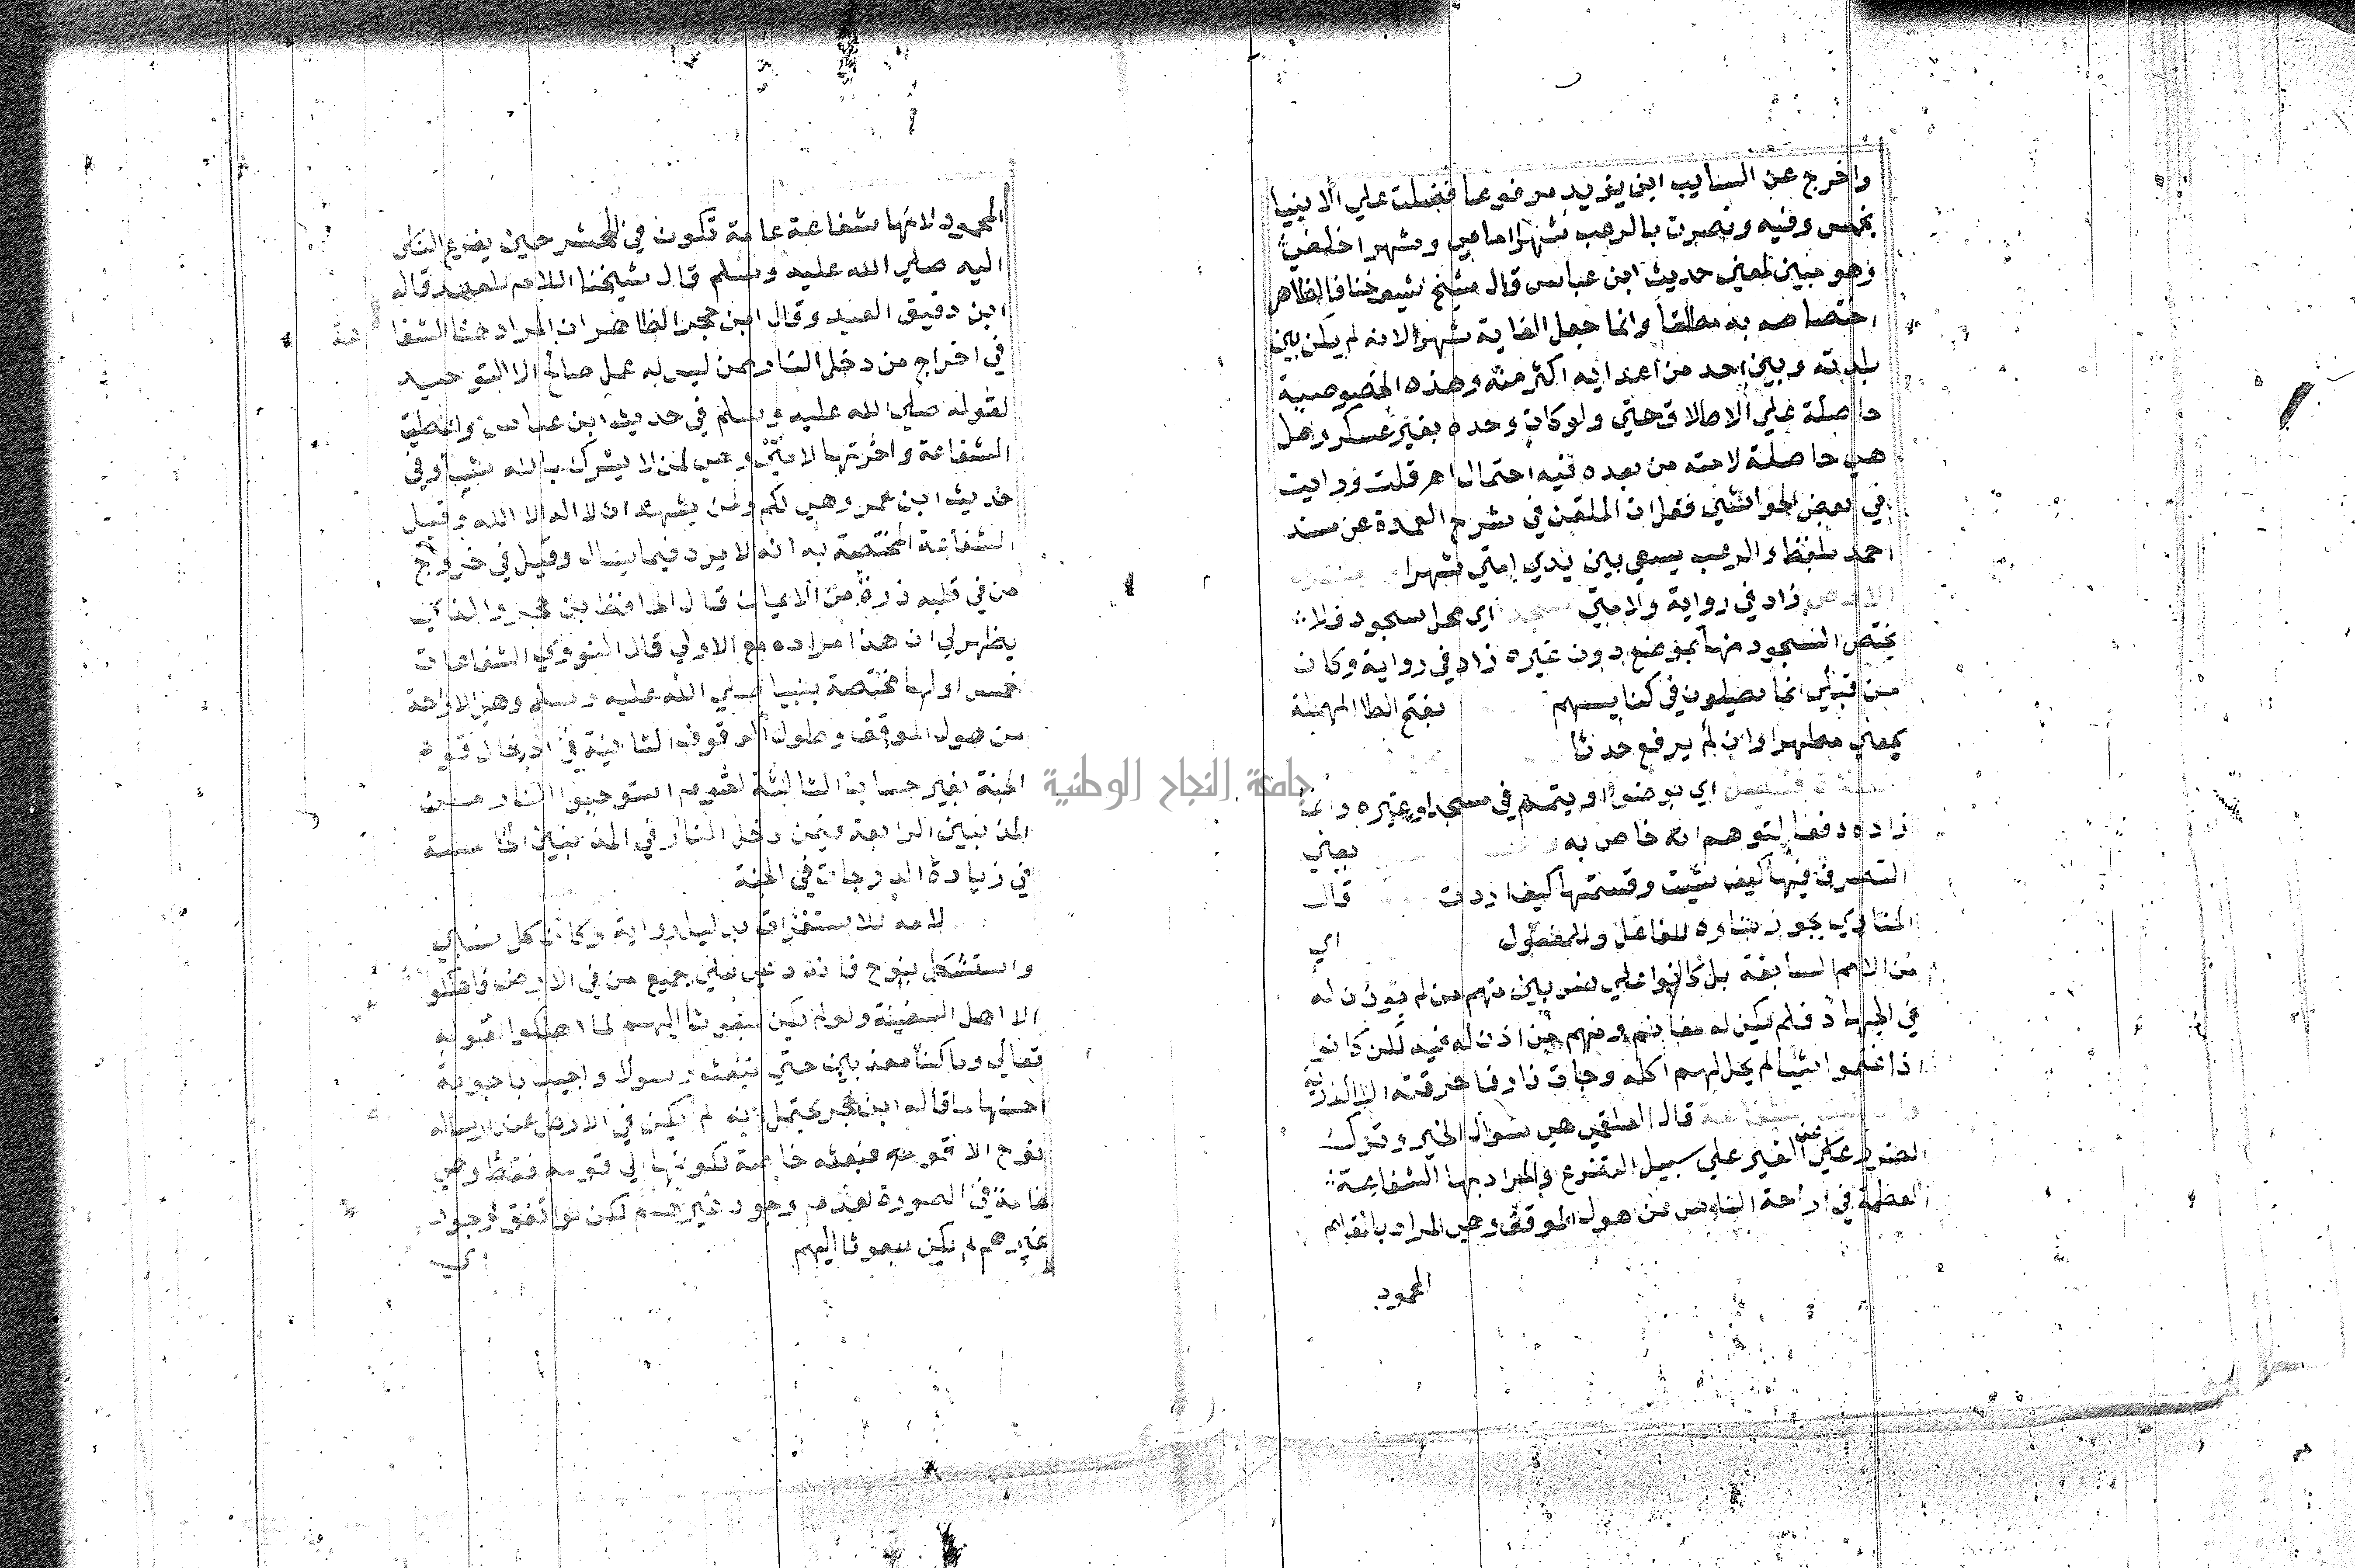 واخرج عن السايب ابن يزيد مرفوعا فضلت علي الانبيا
بخمس وفيه ونصرت بالرعب شهرا امامي وشهرا خلفي
وهو مبين لمعني حديث ابن عباس قال شيخ شيوخنا فالظاهر
اختصاصه به مطلقا وانما جعل الغاية شهرا لانه لم يكن بين
بلدته وبين احد من اعدايه اكثر منه وهذه الخصوصية
حاصلة علي الاطلاق حتي ولو كان وحده بغير عسكر وهل
هي حاصلة لامته من بعده فيه احتمال اهـ قلت ورايت
في بعض الحواشي نقل ابن الملقن في شرح العمدة عن مسند
احمد بلفظ والرعب يسعي بين يدي امتي شهرا
الارض زاد في رواية ولامتي مسجدا اي محل سجود فلا
يختص السجود منها بموضع دون غيره زاد في رواية وكان
من قبلي انما يصلون في كنايسهم بفتح الطا المهملة
بمعني مطهرا وان لم يرفع حدثا
اي بوضوا او يتمم في مسجد او غيره وانما
زاده دفعا لتوهم انه خاص به يعني
التصرف فيها كيف شيت وقسمتها كيف اردت قال
المناوي يجوز بناوه للفاعل وللمفعول اي
من الامم السابقة بل كانوا علي ضربين منهم من لم يوذن له
في الجهاد فلم يكن له مغانم ومنهم من اذن له فيه لكن كانوا
اذا غنموا شيا لم يحل لهم اكله وجات نار فاحرقته الا الذرية
قال العلقمي هي سوال الخير وترك
الضرر عن الغير علي سبيل التضرع والمراد بها الشفاعة
العظمي في اراحة الناس من هول الموقف وهي المراد بالمقام
المحمود
المحمود لانها شفاعة عامة تكون في المحشر حين يفزع الناس
اليه صلي الله عليه وسلم قال شيخنا اللام للعهد قاله
ابن دقيق العيد وقال ابن حجر الظاهر ان المراد هنا الشفا عة
في اخراج من دخل النار ممن ليس له عمل صالح الا التوحيد
لقوله صلي الله عليه وسلم في حديث ابن عباس واعطيت
الشفاعة واخرتها لامتي وهي لمن لا يشرك بالله شيا وفي
حديث ابن عمر وهي لكم ولمن يشهد ان لا اله الا الله وقيل
الشفاعة المختصة به انه لا يرد فيما يسال وقيل في خروج
من في قلبه ذرة من الايمان قال الحافظ بن حجر والذي
يظهر لي ان هذا مراده مع الاولي قال النووي الشفاعات
خمس اولها مختصة بنبينا صلي الله عليه وسلم وهي الاراحة
من هول الموقف وطول الوقوف الثانية في ادخال قوم
الجنة بغير حساب الثالثة لقوم استوجبوا النار من
المذنبين الرابعة فيمن دخل النار في المذنبين الخامسة
في زيادة الدرجات في الجنة
لامه للاستغراق بدليل رواية وكان كل نبي
واستشكل بنوح فانه دعي علي جميع من في الارض فاهلكوا
الا اهل السفينة ولو لم يكن مبعوثا اليهم لما اهلكوا لقوله
تعالي وما كنا معذبين حتي نبعث رسولا واجيب باجوبة
احسنها ما قاله ابن حجر يحتمل انه لم يكن في الارض عند ارساله
نوح الا قومه فبعثه خاصة لكونها الي قومه فقط وهي
عامة في الصورة لعدم وجود غيرهم لكن لو اتفق وجود
غيرهم لم يكن مبعوثا اليهم اي
جامعة النجاح الوطنية